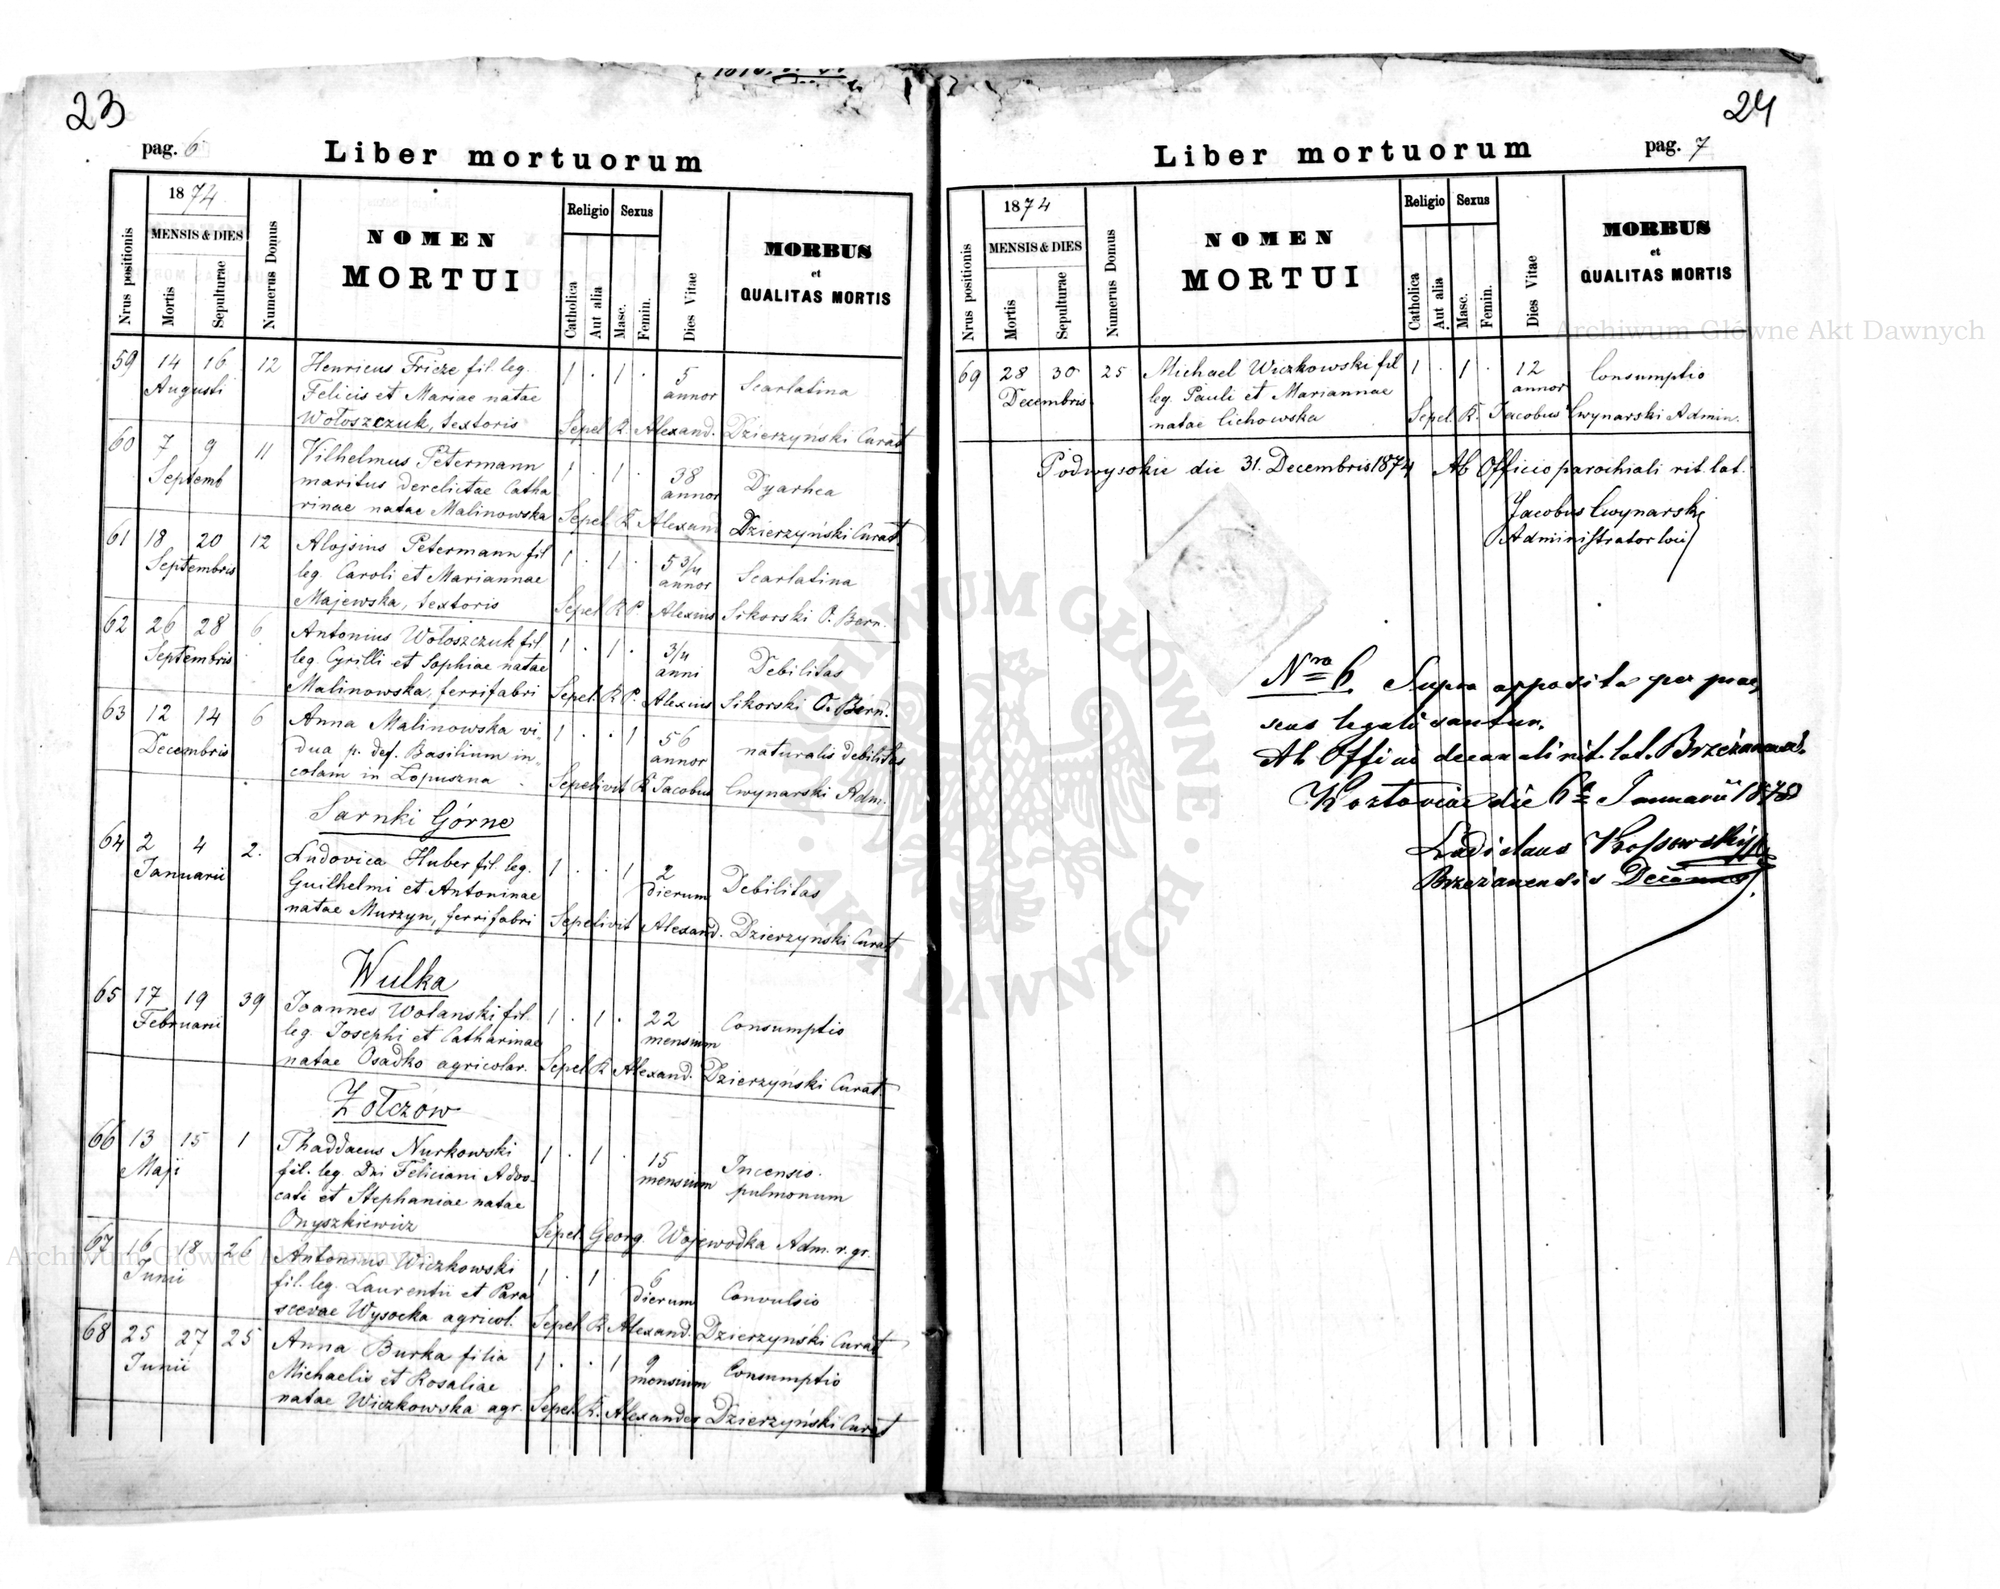 23
pag. 6
Liber mortuorum
Nrus positionis
1874
MENSIS & DIES
Mortis
Sepulturae
Numerus Domus
NOMEN
MORTUI
Religio
Catholica
Aut alia
Sexus
Masc.
Femin.
Dies Vitae
MORBUS
et
QUALITAS MORTIS
59 14 16 12 Henricus Frieze fil. leg. 1 . 1 . 5 Scarlatina
Augusti Felicis et Mariae natae annor
Wołoszczuk, textoris Sepel. R. Alexand. Dzierzyński Curat
60 7 9 11 Vilhelmus Petermann 1 . 1 . 38 Dyarhea
Septemb maritus derelictae Catha annor
rinae natae Malinowska Sepel. R Alexand Dzierzyński Curat.
61 18 20 12 Alojsius Petermann fil 1 . 1 . 5 3/4 Scarlatina
Septembris leg. Caroli et Mariannae annor
Majewska, textoris Sepel. R P. Alexius Sikorski O. Bern.
62 26 28 6 Antonius Wołoszczuk fil 1 . 1 . 3/4 Debilitas
Septembris leg. Cyrilli et Sophiae natae anni
Malinowska, ferrifabri Sepel. R P. Alexius Sikorski O. Bern.
63 12 14 6 Anna Malinowska vi- 1 . . 1 56 naturalis debilitas
Decembris dua p. def. Basilium in- annor
colam in Lopuszna Sepelivit R Jacobus Cwynarski Adm.
Sarnki Górne
64 2 4 2. Ludovica Huber fil. leg. 1 . . 1 2 Debilitas
Januarii Guilhelmi et Antoninae dierum
natae Murzyn, ferrifabri Sepelivit Alexand. Dzierzynski Curat
Wulka
65 17 19 39 Joannes Wolanski fil. 1 . 1 . 22 Consumptio
Februarii leg. Josephi et Catharinae mensium
natae Osadko agricolar. Sepel. R Alexand. Dzierzyński Curat.
Żołczow
66 13 15 1 Thaddaeus Nurkowski 1 . 1 . 15 Incensio
Maji fil. leg. Dni Feliciani Advo- mensium pulmonum
cati et Stephaniae natae
Onyszkiewicz Sepel. Georg. Wojewodka Adm. r. gr.
67 16 18 26 Antonius Wiczkowski 1 . 1 6 Convulsio
Junii fil. leg. Laurentii et Para dierum
scevae Wysocka agricol. Sepel. R Alexand. Dzierzyński Curat
68 25 27 25 Anna Burka filia 1 . . 1 9 Consumptio
Junii Michaelis et Rosaliae mensium
natae Wiczkowska agr. Sepel. R. Alexander Dzierzyński Curat
24
Liber mortuorum
pag. 7
Nrus positionis
1874
MENSIS & DIES
Mortis
Sepulturae
Numerus Domus
NOMEN
MORTUI
Religio
Catholica
Aut alia
Sexus
Masc.
Femin.
Dies Vitae
MORBUS
et
QUALITAS MORTIS
69 28 30 25 Michael Wiczkowski fil 1 . 1 . 12 Consumptio
Decembris leg. Pauli et Mariannae annor
natae Cichowska Sepel. R. Jacobus Cwynarski Admin.
Podwysokie die 31. Decembris 1874 Ab Officio parochiali rit. lat.
Jacobus Cwynarski
Administrator loci
Nro 6. Supra apposita per prae-
sens legalisantur.
Ab Officio decanali rit. lat. Brzeżanensi
Koztoviae die 6a Januarii 1878
Ladislaus Kossowski
Brzeżanensis Decanus
Archiwum Główne Akt Dawnych
Archiwum Główne Akt Dawnych
ARCHIWUM GŁÓWNE · AKT DAWNYCH ·